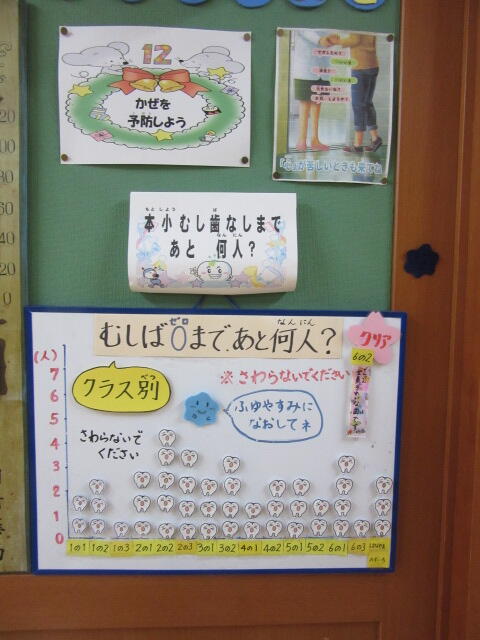 12
かぜを
予防しよう
「心」が苦しいときも来てね
もとしょう ば
本小むし歯なしまで
なんにん
あと 何人？
ゼロ なんにん
むしば0まで、あと何人？
クリア
6の2
(人)
7
6
5
4
3
2
1
0
べつ
クラス別
※さわらないでください
ふゆやすみに
なおしてネ
さわらないで
ください
1の1 1の2 1の3 2の1 2の2 2の3 3の1 3の2 4の1 4の2 5の1 5の2 6の1 6の3